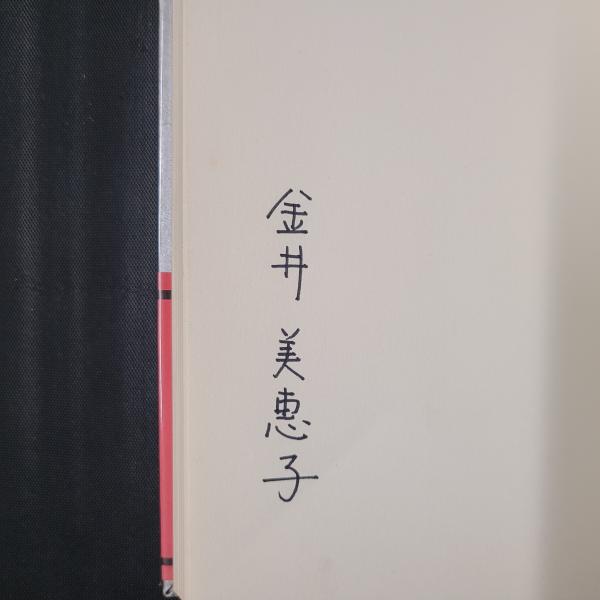 金井 美恵子